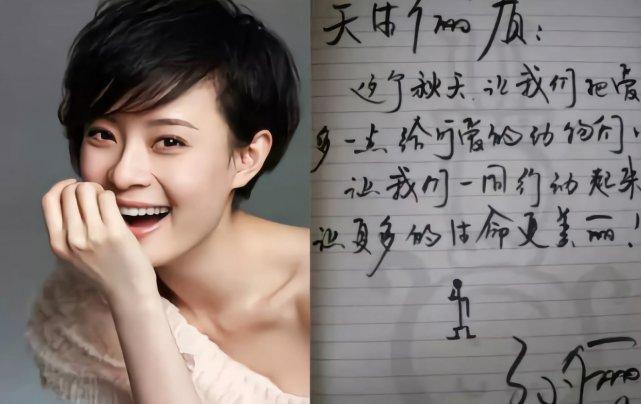 这个秋天,让我们把爱
多一点给可爱的动物们,
让我们一同行动起来
让更多的生命更美丽!